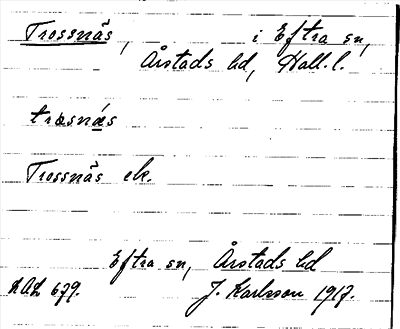 Trossnäs, i Eftra sn,
Årstads hd, Hall. l.
trosnæs
Trossnäs ek.
Eftra sn, Årstads hd
KAL 679. J. Karlsson 1917.